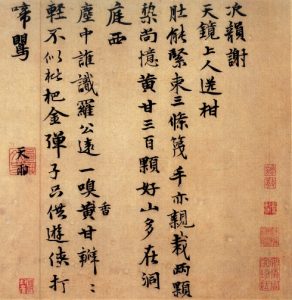 次韻謝
天鏡上人送柑
肚能緊束三條篾手亦親栽兩顆
棃尚憶黃甘三百顆好山多在洞
庭西
塵中誰識羅公遠一嗅黃甘香瓣〻
輕不似枇杷金彈子只供遊俠打
啼鶯
天雨